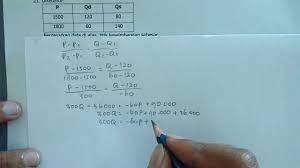 21. Diketahui
P Qd Qs
1500 120 80
1800 60 140
Berdasarkan data di atas, titik keseimbangan sebesar
P - P₁ / P₂ - P₁ = Q - Q₁
P - 1500 / 1800 - 1500 = Q - 120 / 60 - 120
P - 1500 / 300 = Q - 120 / -60
300Q - 36000 = -60P + 90.000
300Q = -60P + 90.000 + 36.000
300Q = -60P +